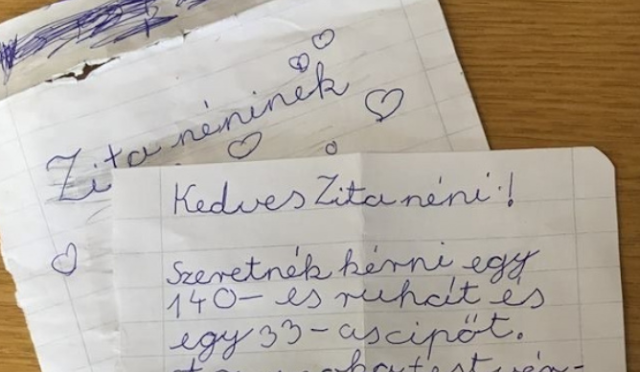 Zita néninek
Kedves Zita néni!
Szeretnék kérni egy
140-es ruhát és
egy 33-as cipőt.